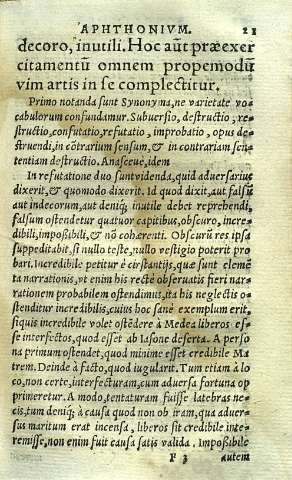 APHTHONIVM. 21
decoro, inutili. Hoc aũt præexer
citamentũ omnem propemodũ
vim artis in se complectitur.
Primo notanda sunt Synonyma, ne varietate vo-
cabulorum confundamur. Subuersio, destructio, re-
structio, confutatio, refutatio, improbatio, opus de-
struendi, in cõtrarium sensum, & in contrariam sen-
tentiam destructio. Anasceue, idem
In refutatione duo sunt vidẽda, quid aduersarius
dixerit, & quomodo dixerit. Id quod dixit, aut falsũ
aut indecorum, aut deniq; inutile debet reprehendi,
falsum ostendetur quatuor capitibus, obscuro, incre-
dibili, impoßibili, & nõ cohærenti. Obscurũ res ipsa
suppeditabit, si nullo teste, nullo vestigio poterit pro
bari. Incredibile petitur è cirstantijs, quæ sunt elemẽ
ta narrationis, vt enim his rectè obseruatis fieri nar-
rationem probabilem ostendimus, ita his neglectis o-
stenditur incredibilis, cuius hoc sanè exemplum erit,
siquis incredibile volet ostẽdere à Medea liberos es-
se interfectos, quod esset ab Iasone deserta. A perso
na primum ostendet, quod minime esset credibile Ma
trem. Deinde à facto, quod iugularit. Tum etiam à lo
co, non certe, interfecturam, cum aduersa fortuna op
primeretur. A modo, tentaturam fuisse latebras ne-
cis, tum deniq; à causa quod non ob iram, qua aduer-
sus maritum erat incensa, liberos sit credibile inte-
remisse, non enim fuit causa satis valida. Impoßibile
F 3 autem